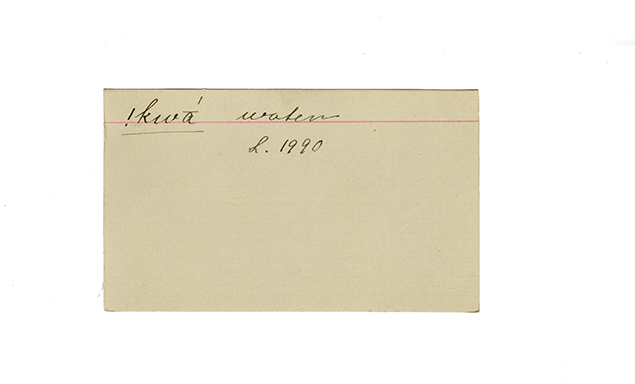 !kwā́ water
L. 1990